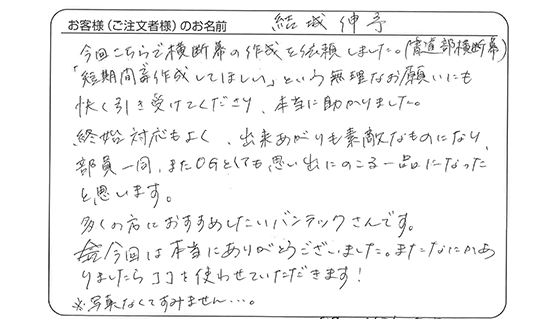 お客様(ご注文者様)のお名前 結城伸予
今回こちらで横断幕の作成を依頼しました。(書道部横断幕)
「短期間で作成してほしい」という無理なお願いにも
快く引き受けてくださり、本当に助かりました。
終始対応もよく、出来あがりも素敵なものになり、
部員一同、またOGとしても思い出にのこる一品になった
と思います。
多くの方におすすめしたいバンテックさんです。
今回は本当にありがとうございました。またなにかあ
りましたらココを使わせていただきます!
※写真なくてすみません…。